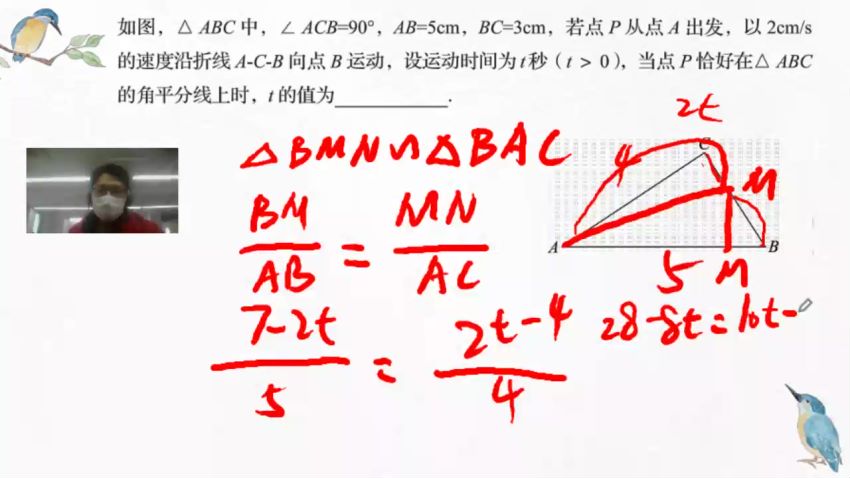 如图，△ ABC 中，∠ ACB=90°，AB=5cm，BC=3cm，若点 P 从点 A 出发，以 2cm/s
的速度沿折线 A-C-B 向点 B 运动，设运动时间为 t 秒（t > 0），当点 P 恰好在△ ABC
的角平分线上时，t 的值为__________.
2t
△BMN∽△BAC
C
4
M
BM/AB = MN/AC
A
B
5 M
7-2t/5 = 2t-4/4
28-8t=10t-